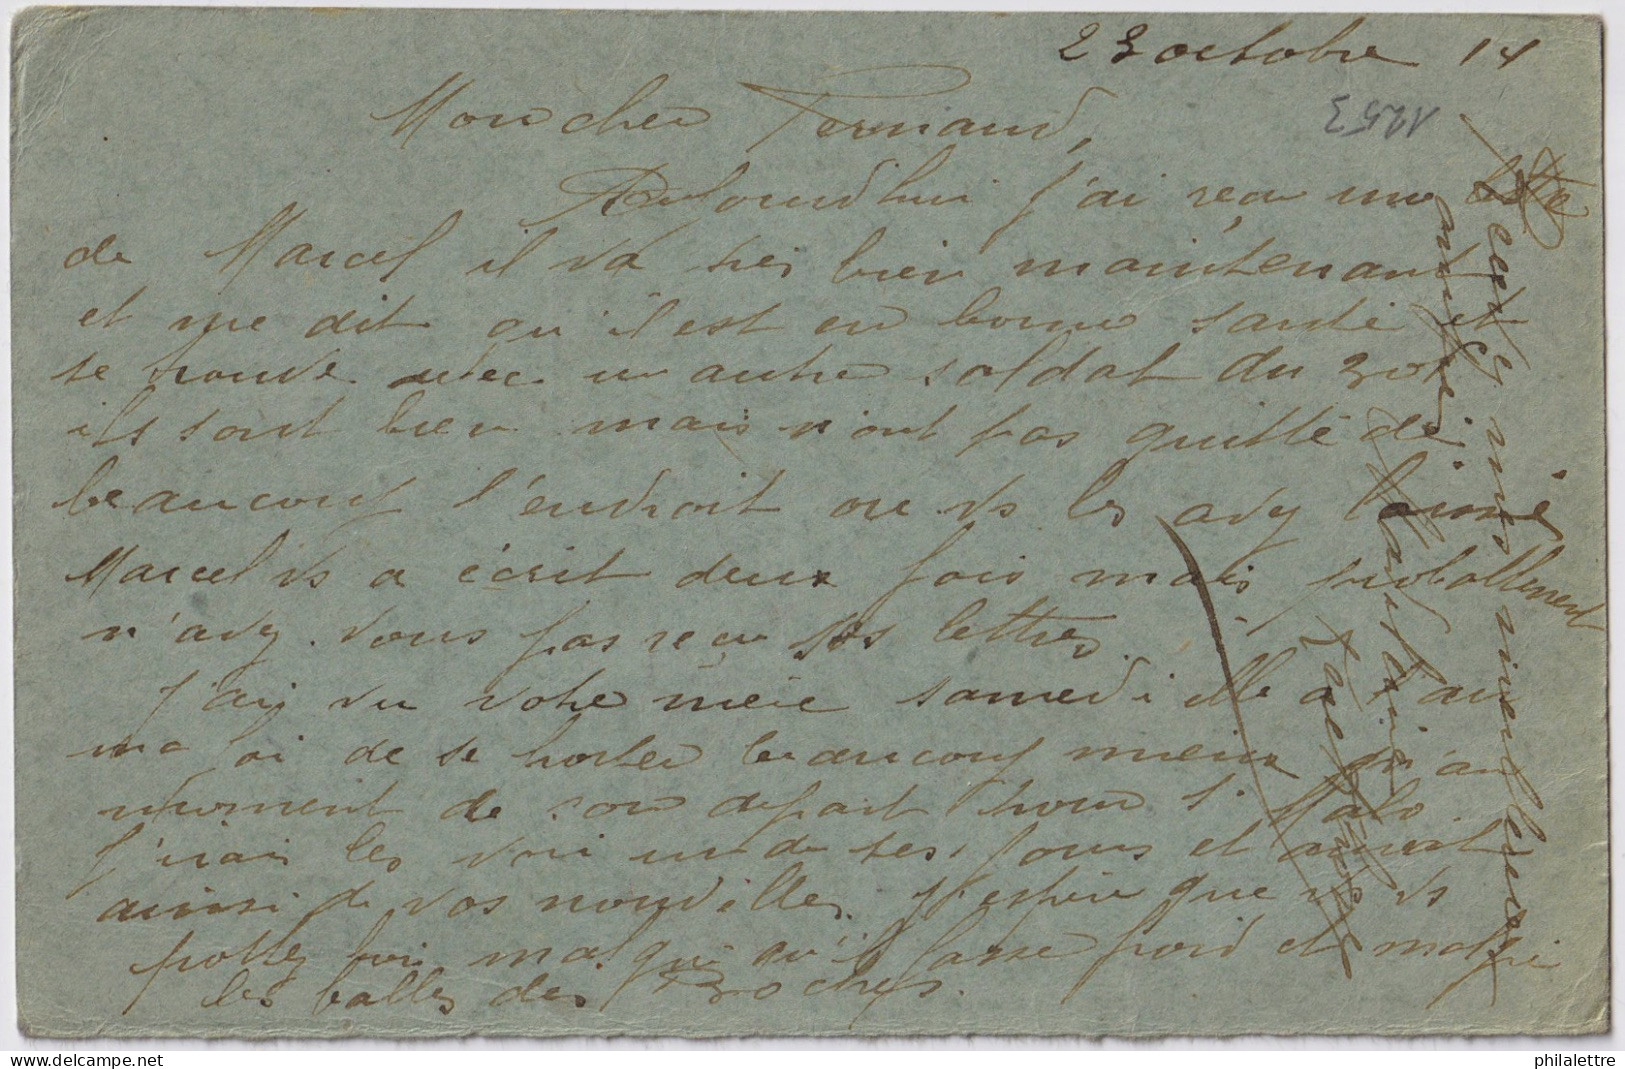 23 octobre 14
1253
Mon cher Fernand,
Aujourd'hui j'ai reçu une lettre
de Marcel il va très bien maintenant
et me dit qu'il est en bonne santé et
se trouve avec un autre soldat du 201
ils sont bien mais n'ont pas quitté de
beaucoup l'endroit ou vs les avez laissé
Marcel vs a écrit deux fois mais probablement
n'avez vous pas reçu ses lettres.
J'ai vu votre mère samedi elle a l'air
ma foi de se porter beaucoup mieux qu'au
moment de son départ pour St Malo
J'irai les voir un de ses jours et aurait
ainsi de vos nouvelles. J'espère que vs vs
portez bien malgré qu'il fasse froid et malgré
les balles des Boches.
Recevez mes meilleures
amitiés.